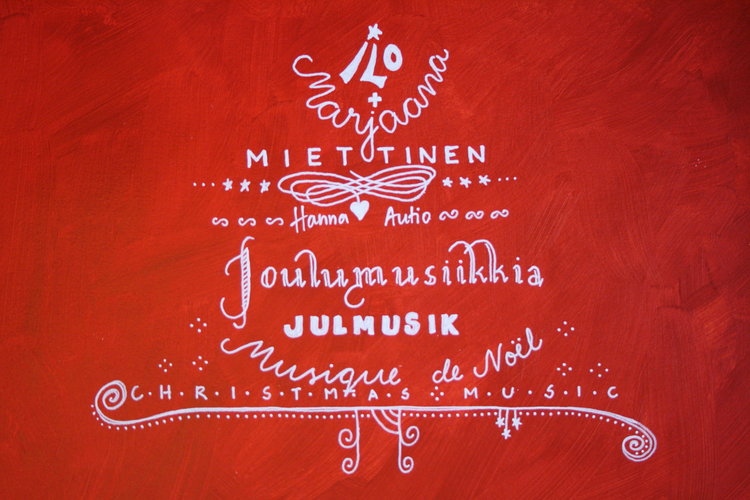 ILO
+
Marjaana
MIETTINEN
Hanna Autio
Joulumusiikkia
JULMUSIK
Musique de Noël
C·H·R·I·S·T·M·A·S M·U·S·I·C